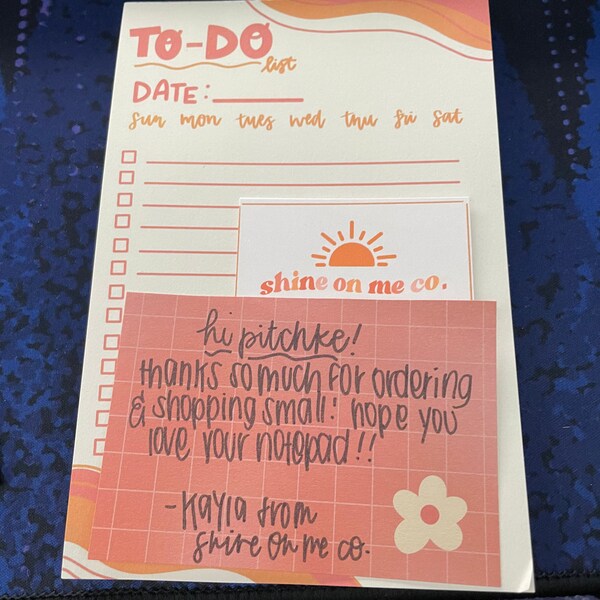 TO-DO
list
DATE:
sun mon tues wed thu fri sat
shine on me co.
hi pitchke!
thanks so much for ordering
& shopping small! hope you
love your notepad!!
-Kayla from
shine on me co.